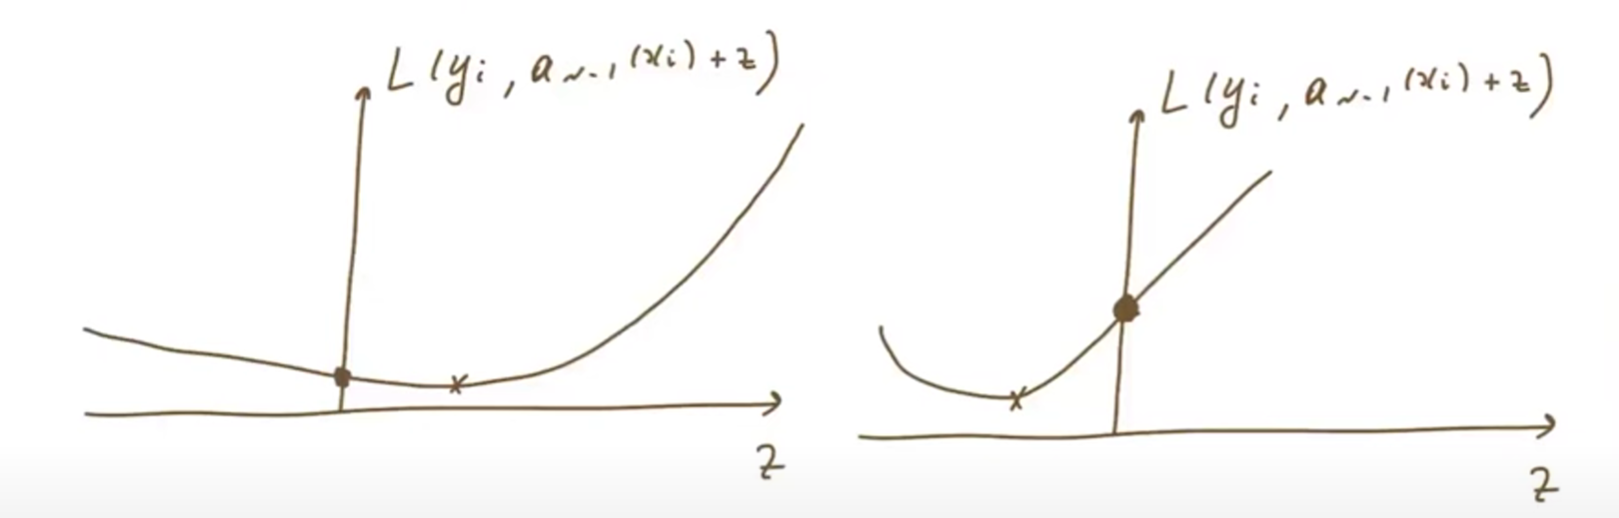 L(yᵢ, a_{N-1}(xᵢ) + z)
z
L(yᵢ, a_{N-1}(xᵢ) + z)
z